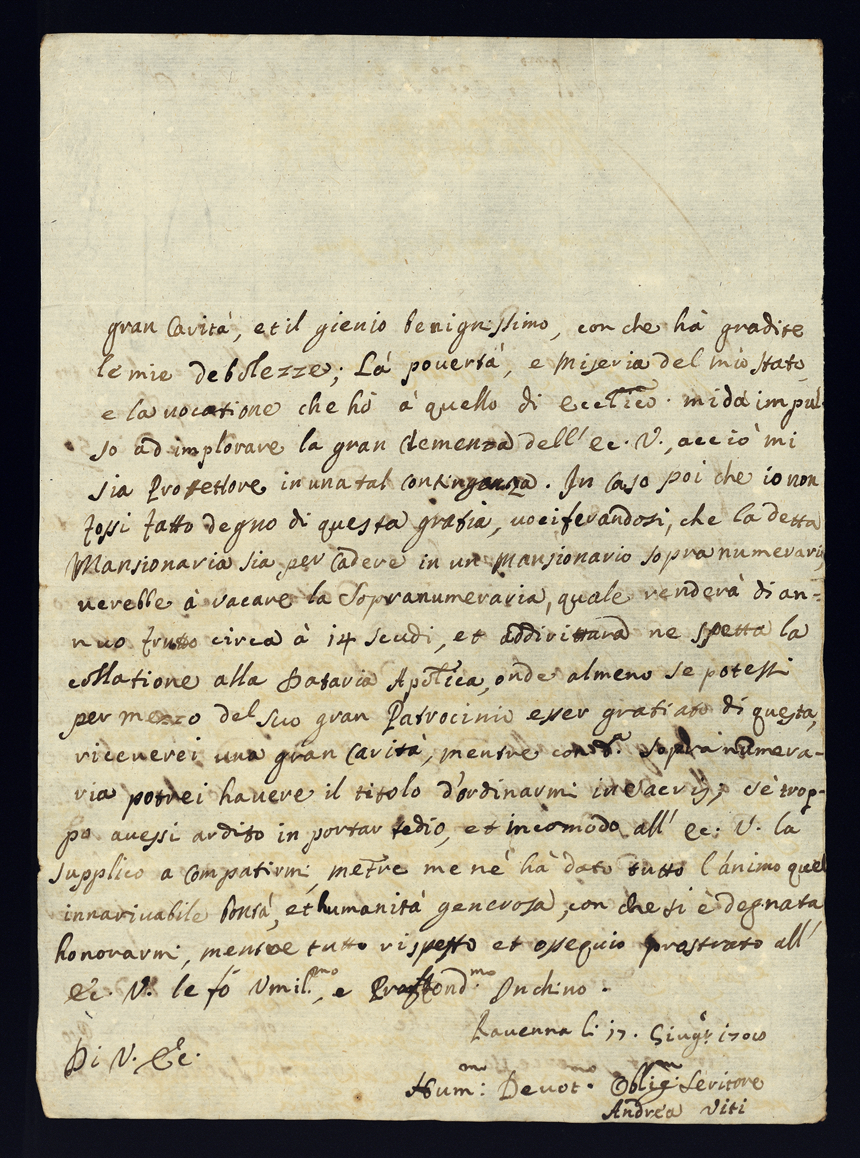 gran Carità, et il gienio benignissimo, con che hà gradite
le mie debolezze; La povertà, e Miseria del mio stato
e la vocatione che hò à quello di Eccl.ico mi dà impul-
so ad implorare la gran Clemenza dell' Ec. V., acciò mi
sia Protettore in una tal contingenza. In Caso poi che io non
fossi fatto degno di questa gratia, vociferandosi, che la detta
Mansionaria sia per Cadere in un Mansionario sopranumerario
verebbe à vacare la Sopranumeraria, quale renderà di an-
nuo frutto circa à 14 scudi, et addirittura ne spetta la
collatione alla Dataria Apostlica, onde almeno se potessi
per mezzo del suo gran Patrocinio esser gratiato di questa,
riceverei una gran Carità, mentre con d.a Sopra numera-
ria potrei havere il titolo d'ordinarmi in Sacris; se trop-
po avessi ardito in portar tedio, et incomodo all' Ec. V. la
supplico a Compatirmi, metre me nè hà dato tutto l'ánimo quel
innarivabile bontà, et humanità generosa, con che si è degnata
honorarmi, mentre tutto rispetto et osequio prostrato all'
Ec. V. le fò Vmil.mo, e Proffond.mo Inchino.
Ravenna li 17. Giug.
Di V. Ec.
Hum.mo Devot.mo Oblig. Servitore
Andrea Viti